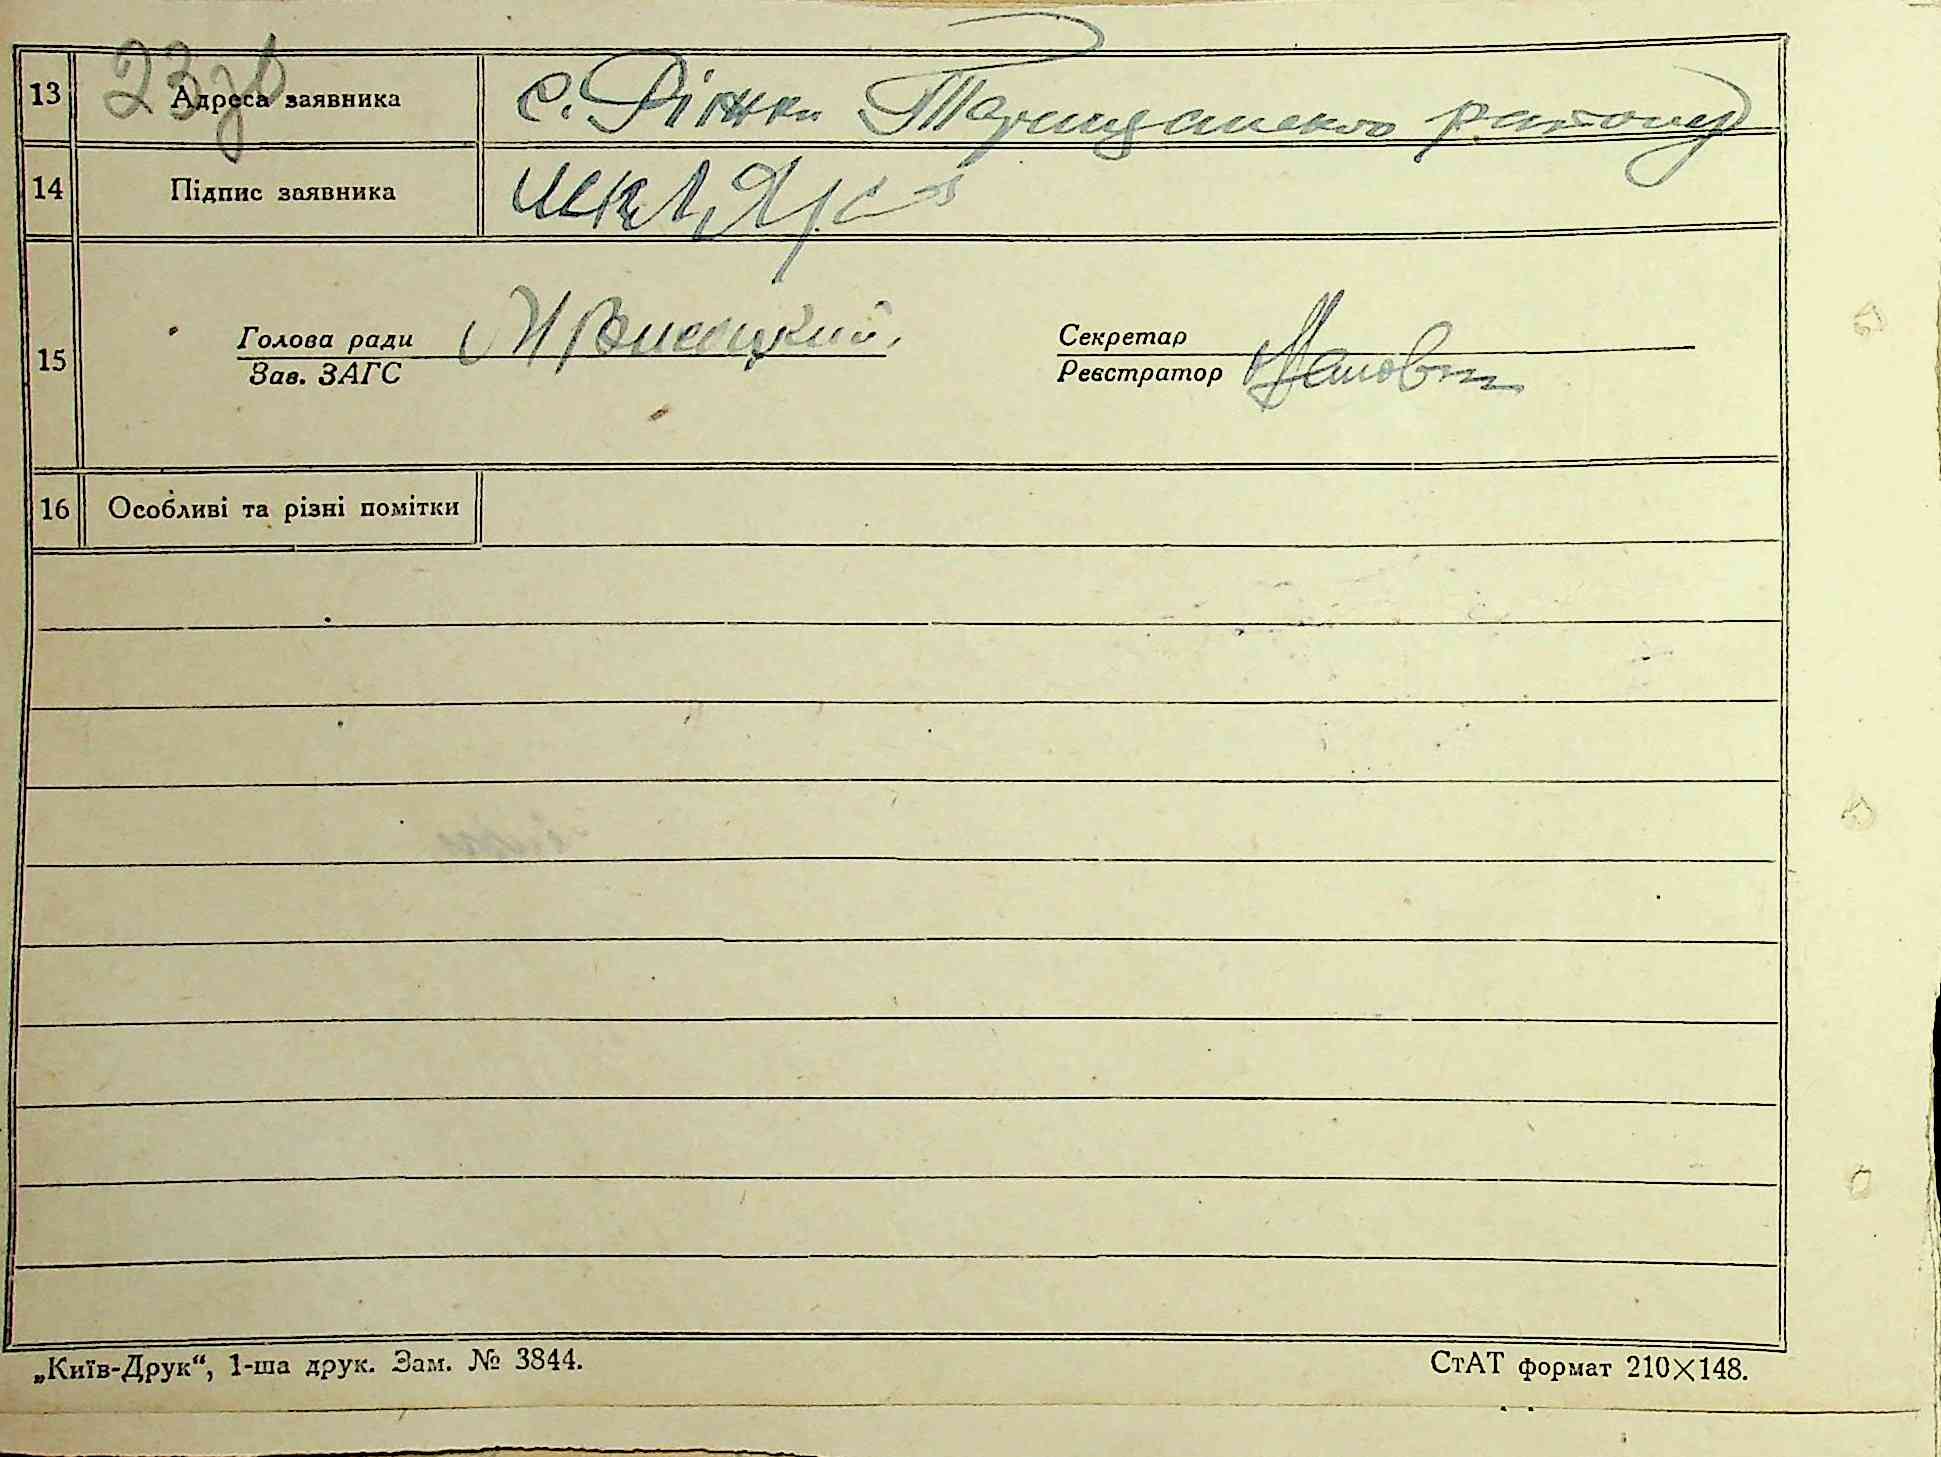 23зв
13 Адреса заявника с. Ріжки Таращанского району
14 Підпис заявника
15 Голова ради
Зав. ЗАГС
Секретар
Реєстратор
16 Особливі та різні помітки
„Київ-Друк“, 1-ша друк. Зам. № 3844.
СтАТ формат 210×148.